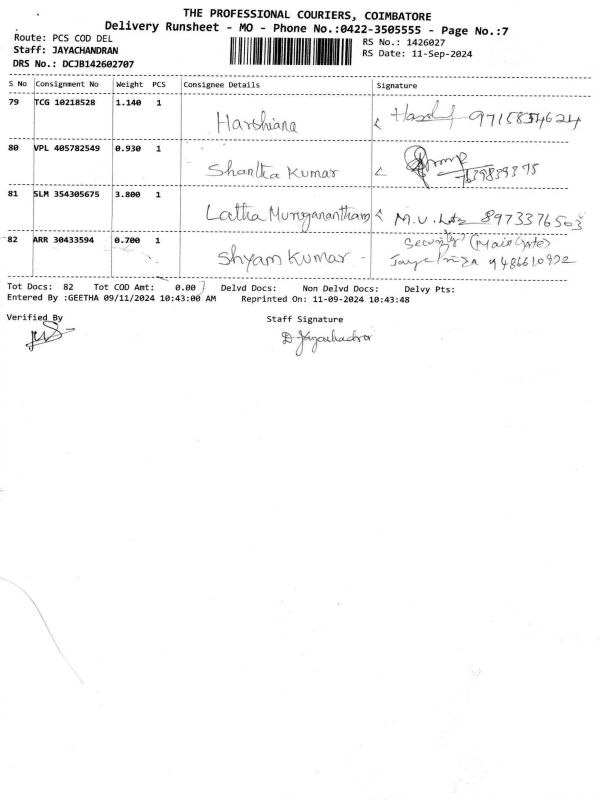 THE PROFESSIONAL COURIERS, COIMBATORE
Delivery Runsheet - MO - Phone No.:0422-3505555 - Page No.:7
Route: PCS COD DEL
RS No.: 1426027
Staff: JAYACHANDRAN
RS Date: 11-Sep-2024
DRS No.: DCJB142602707
S No Consignment No Weight PCS Consignee Details Signature
79 TCG 10218528 1.140 1
Harshiana 9715854624
80 VPL 405782549 0.930 1
Shantha Kumar 7639839375
81 SLM 354305675 3.800 1
Latha Muruganantham M.U. 8973376503
82 ARR 30433594 0.700 1
Security (Main Gate)
Shyam Kumar - 9486610922
Tot Docs: 82 Tot COD Amt: 0.00 Delvd Docs: Non Delvd Docs: Delvy Pts:
Entered By :GEETHA 09/11/2024 10:43:00 AM Reprinted On: 11-09-2024 10:43:48
Verified By Staff Signature